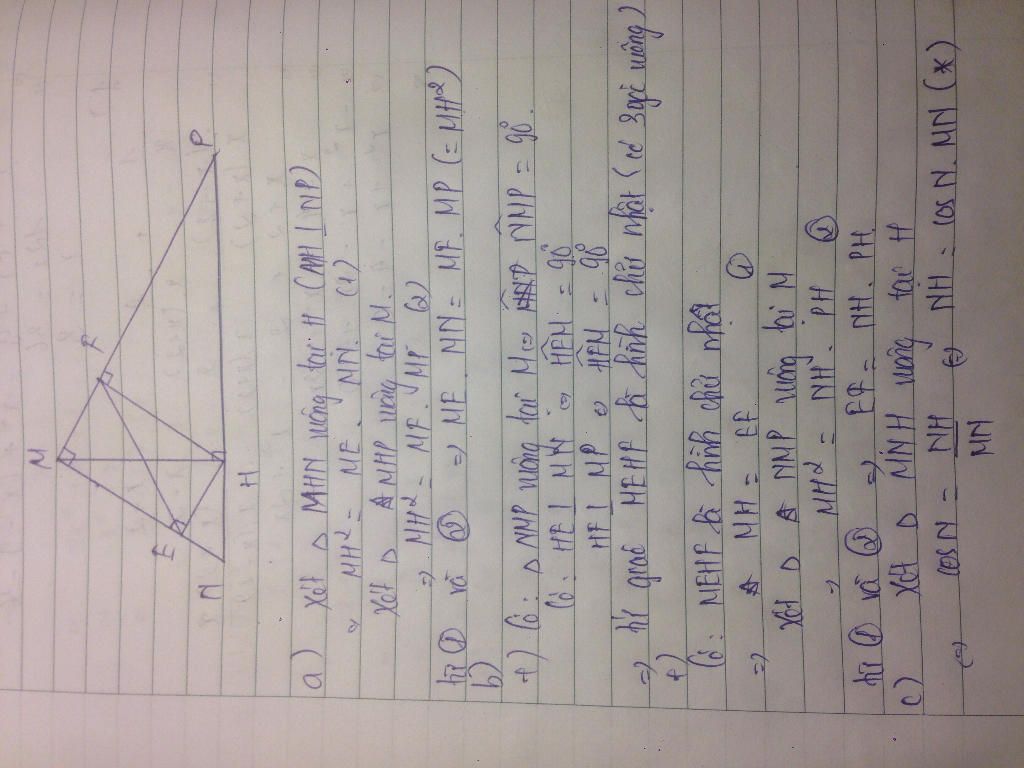 M
F
P
E
N
H
a) Xét △ MHN vuông tại H (MH ⊥ NP)
⇒ MH² = ME . MN. (1)
Xét △ MHP vuông tại M.
⇒ MH² = MF . MP (2)
từ ① và ② ⇒ ME . MN = MF. MP (= MH²)
b)
+) Có: △ NMP vuông tại M ⇒ NMP = 90°.
Có: HE ⊥ MN ⇒ HEM = 90°
HF ⊥ MP ⇒ HFM = 90°
⇒ tứ giác MEHF là hình chữ nhật (có 3 góc vuông)
+)
Có: MEHF là hình chữ nhật
⇒ MH = EF ①
Xét △ NMP vuông tại M
⇒ MH² = NH . PH ②
từ ① và ② ⇒ EF = NH. PH.
c) Xét △ MNH vuông tại H
⇔ cos N = NH/MN ⇔ NH = cos N. MN (*)